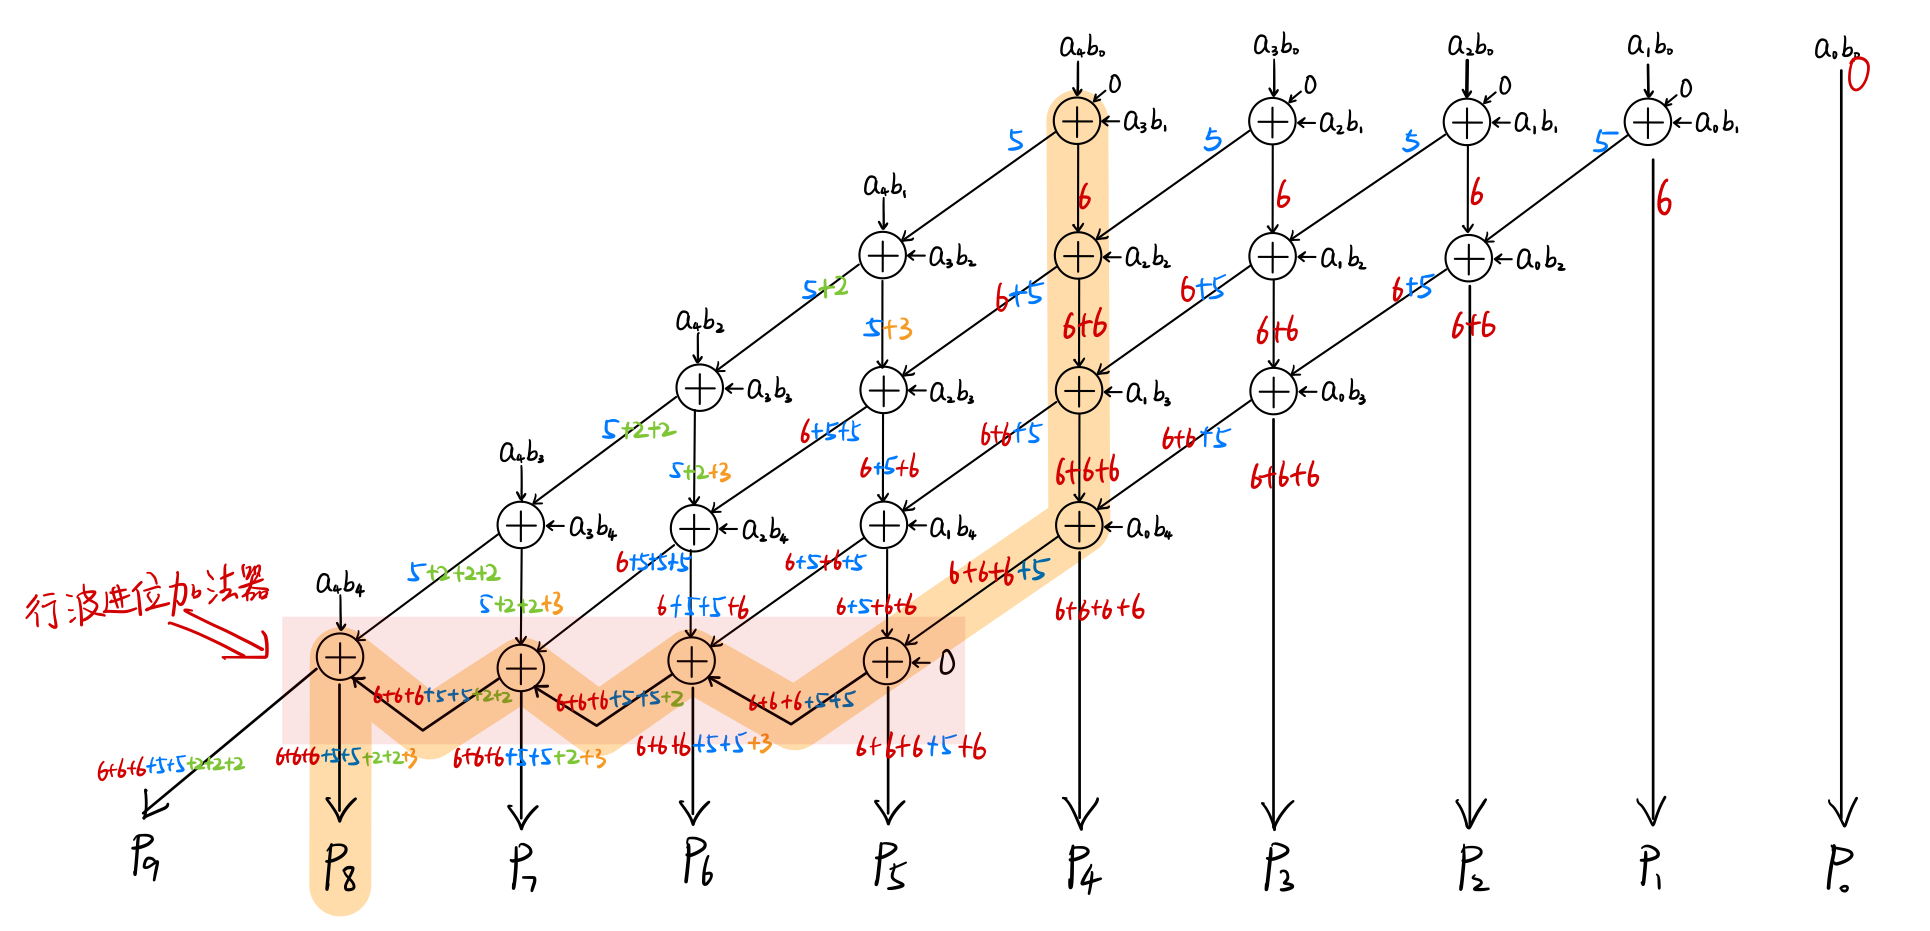 a₄b₀ a₃b₀ a₂b₀ a₁b₀ a₀b₀
0 0 0 0 0
a₃b₁ a₂b₁ a₁b₁ a₀b₁
5 5 5 5
a₄b₁ 6 6 6 6
a₃b₂ a₂b₂ a₁b₂ a₀b₂
5+2 6+5 6+5 6+5
a₄b₂ 5+3 6+6 6+6 6+6
a₃b₃ a₂b₃ a₁b₃ a₀b₃
5+2+2 6+5+5 6+6+5 6+6+5
a₄b₃ 5+2+3 6+5+6 6+6+6 6+6+6
a₃b₄ a₂b₄ a₁b₄ a₀b₄
5+2+2+2 6+5+5+5 6+5+6+5 6+6+6+5
行波进位加法器
a₄b₄ 5+2+2+3 6+5+5+6 6+5+6+6 6+6+6+6
0
6+6+6+5+5+2+2 6+6+6+5+5+2 6+6+6+5+5
6+6+6+5+5+2+2+2 6+6+6+5+5+2+2+3 6+6+6+5+5+2+3 6+6+6+5+5+3 6+6+6+5+6
P₉ P₈ P₇ P₆ P₅ P₄ P₃ P₂ P₁ P₀